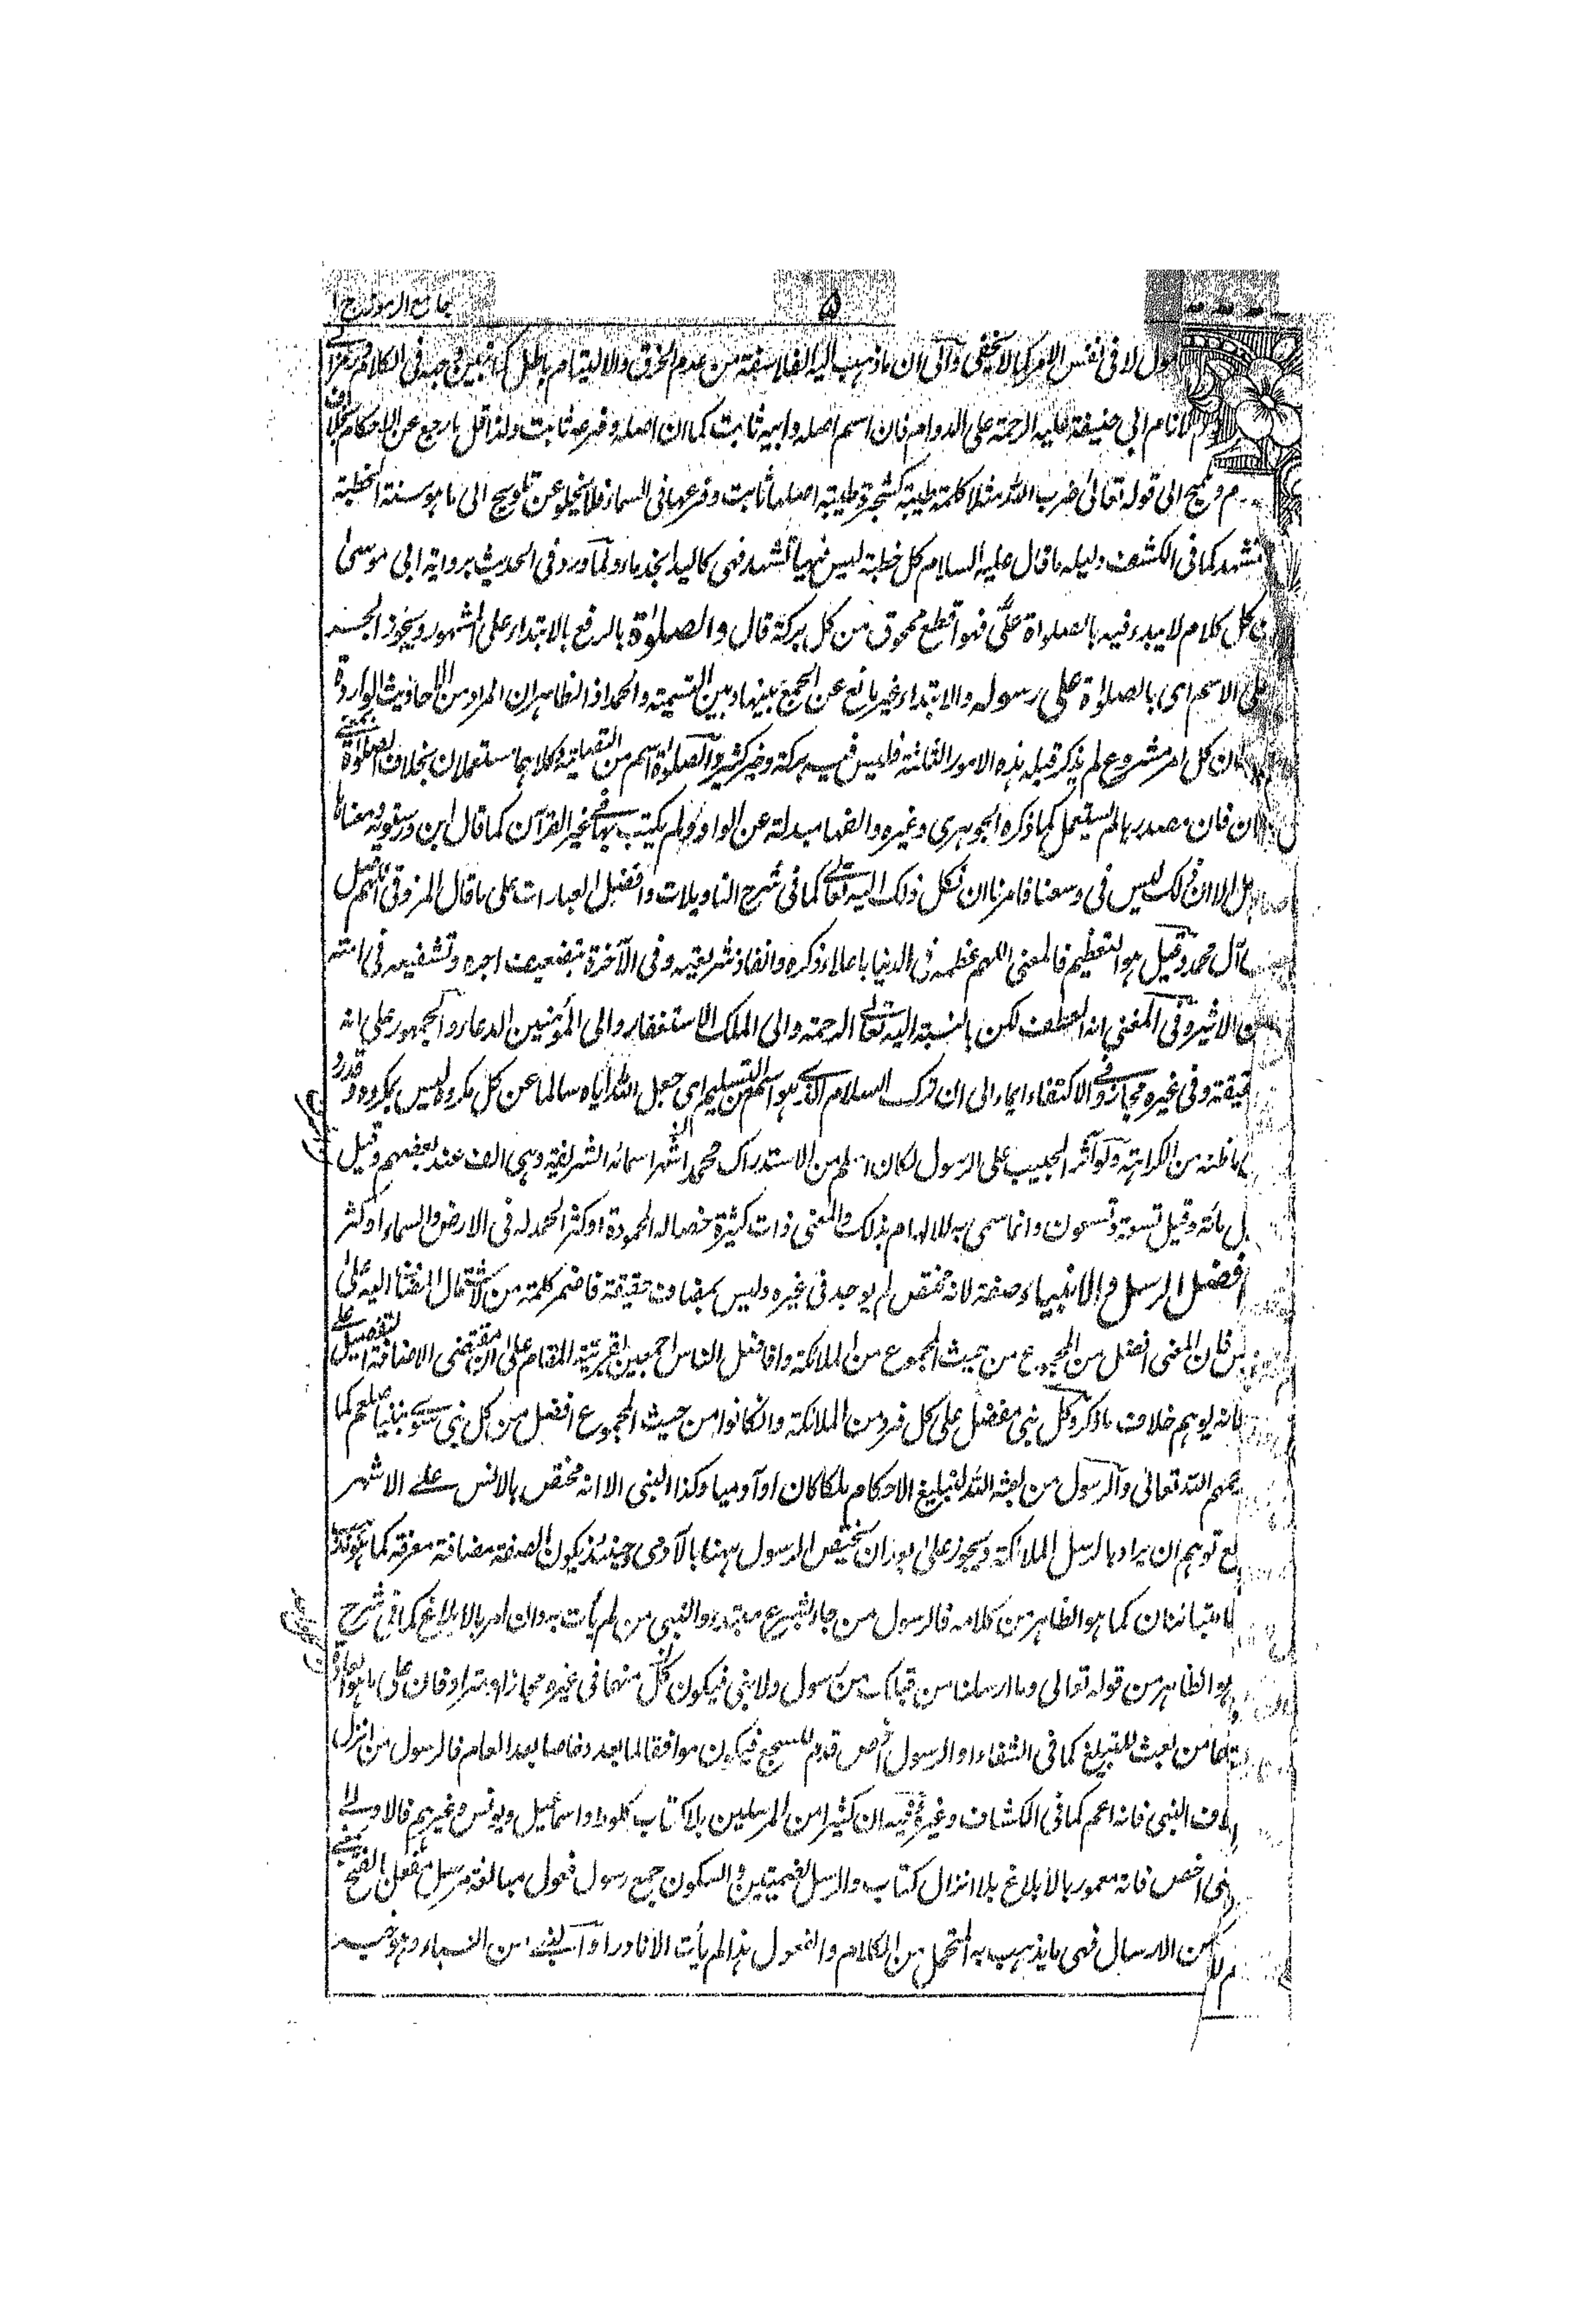 جامع الرموز ج ا
۵
لا فى نفس الامر كما لا يخفى والى ان ما ذهب اليه الفلاسفة من عدم الخرق والالتيام باطل كما تبين وجهه فى الكلام
الامام ابى حنيفة عليه الرحمة على الدوام فان اسم اصله وابيه ثابت كما ان اصله وفرعه ثابت ولذا قل ما رجع عن الاحكام بخلاف
وتلميح الى قوله تعالىٰ ضرب الله مثلا كلمة طيبة كشجرة طيبة اصلها ثابت وفرعها فى السماء فلا يخلو عن تلويح الى ما هو سنة الخطبة
تشهد كما فى الكشف دليله ما قال عليه السلام كل خطبة ليس فيها تشهد فهى كاليد الجذماء ولما ورد فى الحديث برواية ابى موسىٰ
كل كلام لا يبدء فيه بالصلواة علىّ فهو اقطع ممحوق من كل بركة قال والصلوٰة بالرفع بالابتداء على المشهور ويجوز الجر
على الاسم اى بالصلوٰة على رسوله والابتداء غير مانع عن الجمع بينها وبين التسمية والحمد اذ الظاهر ان المراد من الاحاديث الواردة
ان كل امر مشروع لم يذكر قبله هذه الامور الثلثة فليس فيه بركة وخير كثير والصلوٰة اسم من التصلية وكلاهما مستعملان بخلاف الصلوٰة
فان مصدرها لم يستعمل كما ذكره الجوهرى وغيره والفها مبدلة عن الواو ولم يكتب بها فى غير القرآن كما قال ابن درستويه ومعناها
الا ان ذلك ليس فى وسعنا فامرنا ان نكل ذلك اليه تعالى كما فى شرح التاويلات وافضل العبارات على ما قال المرزوقى اللهم صل
آل محمد وقيل هو التعظيم فالمعنى اللهم عظمه فى الدنيا باعلاء ذكره وانفاذ شريعته وفى الآخرة بتضعيف اجره وتشفيعه فى امته
الاثير وفى المغنى انه العطف لكن بالنسبة اليه تعالى الرحمة والى الملك الاستغفار والى المؤمنين الدعاء والجمهور على انه
حقيقة وفى غيره مجاز وفى الاكتفاء ايماء الى ان ترك السلام الذى هو اسم من التسليم اى جعل الله اياه سالما عن كل مكروه ليس بمكروه
ما ظنه من الكراهة ولو آثر الحبيب على الرسول لكان اسلم من الاستدراك محمد اشهر اسمائه الشريفة وهى الف عند بعضهم وقيل
مائة وقيل تسعة وتسعون وانما سمى به للالهام بذلك والمعنى ذات كثيرة خصاله المحمودة او كثر الحمد له فى الارض والسماء او كثر
افضل الرسل والانبياء صفة لانه مختص لم يوجد فى غيره وليس بمضاف حقيقة فاضمر كلمة من لاشتمال المضاف اليه علىٰ
فان المعنى افضل من المجموع من حيث المجموع من الملائكة وافاضل الناس اجمعين بقرينة المقام على ان مقتضى الاضافة التفضيل على
لانه يوهم خلاف ما ذكر وكل نبى مفضل على كل فرد من الملائكة وان كانوا من حيث المجموع افضل من كل نبى سوى نبينا صلعم كما
الله تعالىٰ والرسول من بعثه الله لتبليغ الاحكام ملكا كان او آدميا وكذا النبى الا انه مختص بالانس على الاشهر
توهم ان يراد بالرسل الملائكة ويجوز علىٰ بعد ان يختص الرسول ههنا بالآدمى وحينئذ يكون الصفة مضافة معرفة كما هو
متباينان كما هو الظاهر من كلامه فالرسول من جاء بشرع مبتدء والنبى من لم يأت به وان امر بالابلاغ كما فى شرح
هو الظاهر من قوله تعالى وما ارسلنا من قبلك من رسول ولا نبى فيكون كل منهما فى غيره مجازا
من بعث للتبليغ كما فى الشفاء او الرسول اخص قدم للسجع فيكون موافقا لما بعد وخاصا بعد العام فالرسول من انزل
النبى فانه اعم كما فى الكشاف وغيره وفيه ان كثيرا من المرسلين بلا كتاب كلوط واسماعيل ويونس وغيرهم
اخص فانه معمور بالابلاغ بلا انزال كتاب والرسل بضمتين والسكون جمع رسول فعول مبالغة مرسل مفعل بالفتح
من الارسال فهى ما يذهب به المتحمل من الكلام والفعول هذا لم يأت الا نادرا